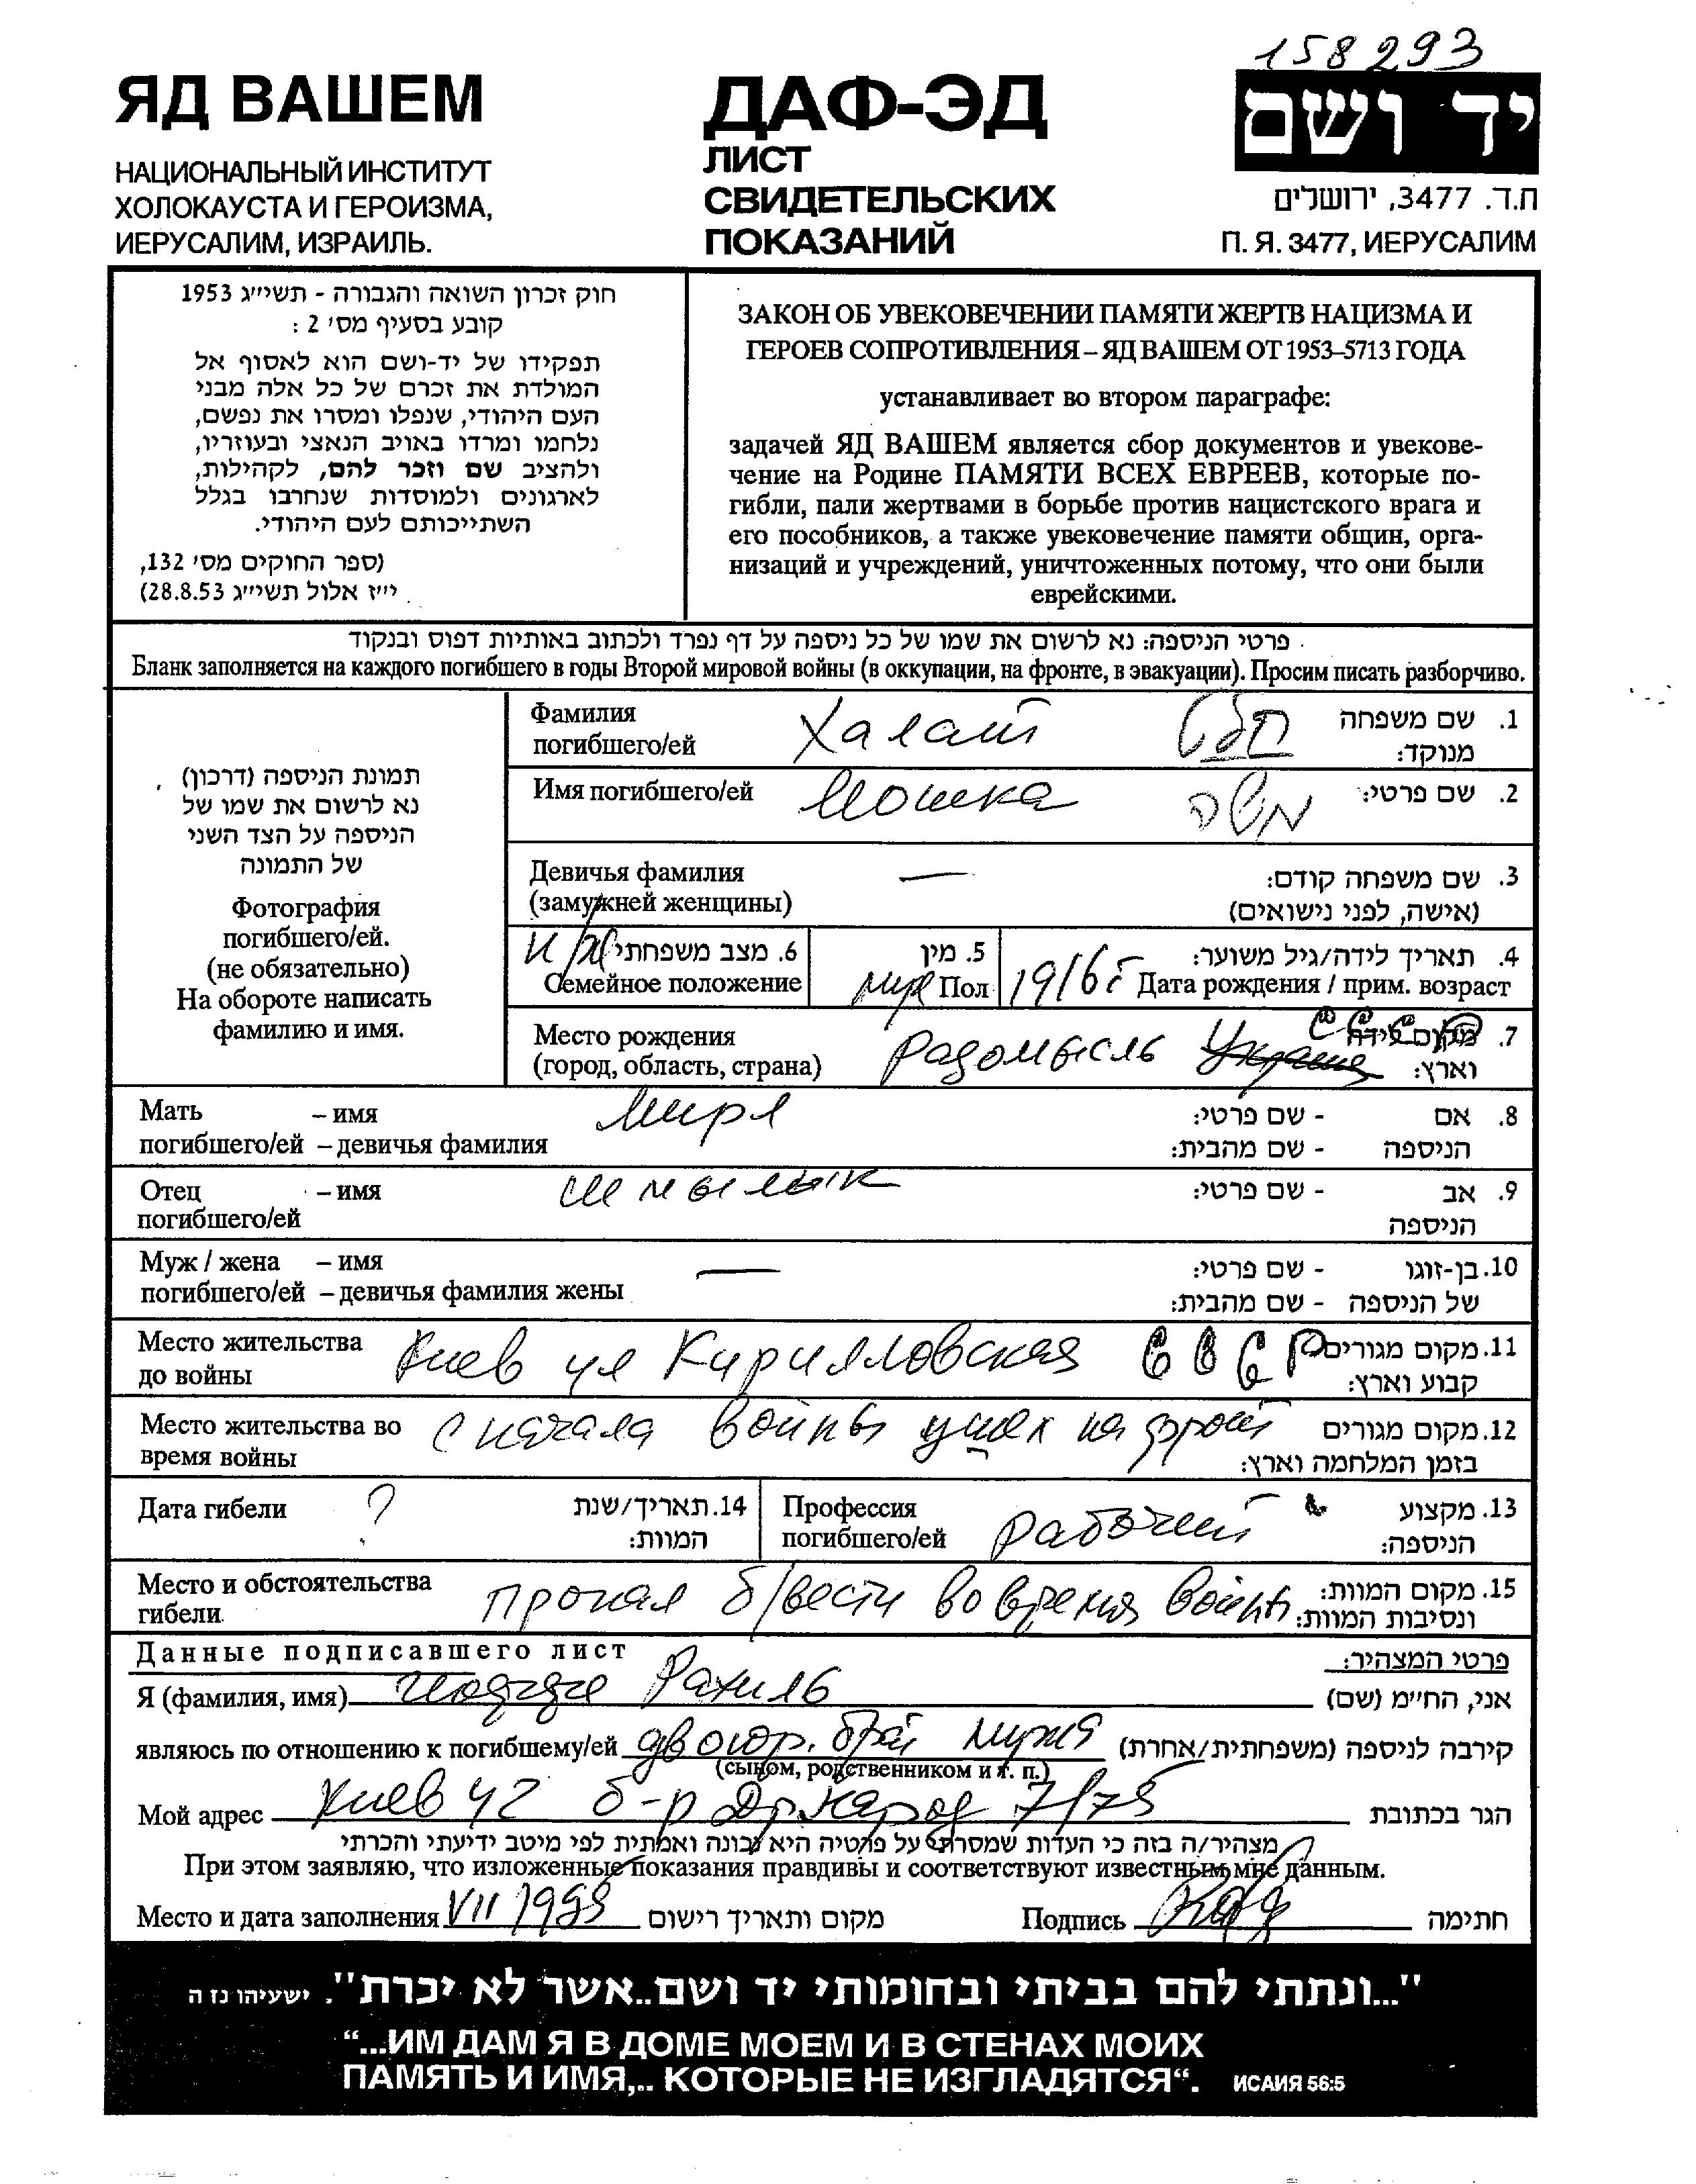 158293
ЯД ВАШЕМ
НАЦИОНАЛЬНЫЙ ИНСТИТУТ
ХОЛОКАУСТА И ГЕРОИЗМА,
ИЕРУСАЛИМ, ИЗРАИЛЬ.
ДАФ-ЭД
ЛИСТ
СВИДЕТЕЛЬСКИХ
ПОКАЗАНИЙ
יד ושם
ת.ד. 3477, ירושלים
П. Я. 3477, ИЕРУСАЛИМ
חוק זכרון השואה והגבורה - תשי״ג 1953
קובע בסעיף מס׳ 2 :
תפקידו של יד-ושם הוא לאסוף אל
המולדת את זכרם של כל אלה מבני
העם היהודי, שנפלו ומסרו את נפשם,
נלחמו ומרדו באויב הנאצי ובעוזריו,
ולהציב שם וזכר להם, לקהילות,
לארגונים ולמוסדות שנחרבו בגלל
השתייכותם לעם היהודי.
(ספר החוקים מס׳ 132,
י״ז אלול תשי״ג 28.8.53)
ЗАКОН ОБ УВЕКОВЕЧЕНИИ ПАМЯТИ ЖЕРТВ НАЦИЗМА И
ГЕРОЕВ СОПРОТИВЛЕНИЯ – ЯД ВАШЕМ ОТ 1953–5713 ГОДА
устанавливает во втором параграфе:
задачей ЯД ВАШЕМ является сбор документов и увекове-
чение на Родине ПАМЯТИ ВСЕХ ЕВРЕЕВ, которые по-
гибли, пали жертвами в борьбе против нацистского врага и
его пособников, а также увековечение памяти общин, орга-
низаций и учреждений, уничтоженных потому, что они были
еврейскими.
פרטי הניספה: נא לרשום את שמו של כל ניספה על דף נפרד ולכתוב באותיות דפוס ובנקוד
Бланк заполняется на каждого погибшего в годы Второй мировой войны (в оккупации, на фронте, в эвакуации). Просим писать разборчиво.
תמונת הניספה (דרכון)
נא לרשום את שמו של
הניספה על הצד השני
של התמונה
Фотография
погибшего/ей.
(не обязательно)
На обороте написать
фамилию и имя.
Фамилия Халат חלט 1. שם משפחה
погибшего/ей מנוקד:
Имя погибшего/ей Мошка משה 2. שם פרטי:
Девичья фамилия — 3. שם משפחה קודם:
(замужней женщины) (אישה, לפני נישואים)
4. תאריך לידה/גיל משוער: 5. מין 6. מצב משפחתי
Н/Ж Семейное положение муж Пол 1916г Дата рождения / прим. возраст
Место рождения Радомысль Украина СССР 7. מקום לידה
(город, область, страна) וארץ:
Мать – имя Миря 8. אם - שם פרטי:
погибшего/ей – девичья фамилия הניספה - שם מהבית:
Отец – имя Шмылык 9. אב - שם פרטי:
погибшего/ей הניספה
Муж / жена – имя — 10. בן-זוגו - שם פרטי:
погибшего/ей – девичья фамилия жены של הניספה - שם מהבית:
Место жительства Киев ул Кирилловская СССР 11. מקום מגורים
до войны קבוע וארץ:
Место жительства во С начала войны ушел на фронт 12. מקום מגורים
время войны בזמן המלחמה וארץ:
Дата гибели ? 14. תאריך/שנת המוות:
Профессия рабочий 13. מקצוע
погибшего/ей הניספה:
Место и обстоятельства пропал б/вести во время войны 15. מקום המוות:
гибели. ונסיבות המוות:
Данные подписавшего лист פרטי המצהיר:
Я (фамилия, имя) Рахиль אני, החי״מ (שם)
являюсь по отношению к погибшему/ей двоюр. брат мужа קירבה לניספה (משפחתית/אחרת)
(сыном, родственником и т. п.)
Мой адрес Киев 42 б-р Др. Народ 7/75 הגר בכתובת
מצהיר/ה בזה כי העדות שמסרתי על פרטיה היא נכונה ואמתית לפי מיטב ידיעתי והכרתי
При этом заявляю, что изложенные показания правдивы и соответствуют известным мне данным.
Место и дата заполнения VII 1995 מקום ותאריך רישום Подпись חתימה
"...ונתתי להם בביתי ובחומותי יד ושם..אשר לא יכרת". ישעיהו נז ה
“...ИМ ДАМ Я В ДОМЕ МОЕМ И В СТЕНАХ МОИХ
ПАМЯТЬ И ИМЯ,.. КОТОРЫЕ НЕ ИЗГЛАДЯТСЯ“. ИСАИЯ 56:5